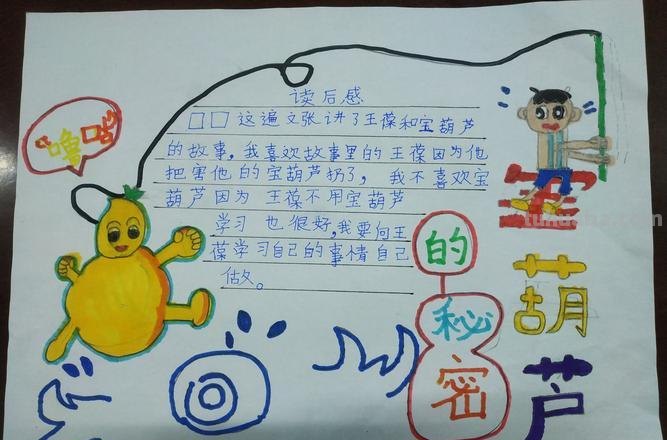 读后感
□□这遍文张讲了王葆和宝葫芦
的故事，我喜欢故事里的王葆因为他
把害他的宝葫芦扔了，我不喜欢宝
葫芦因为王葆不用宝葫芦
学习也很好，我要向王
葆学习自己的事情自己
做。
"噜咕"
葫芦
的秘密